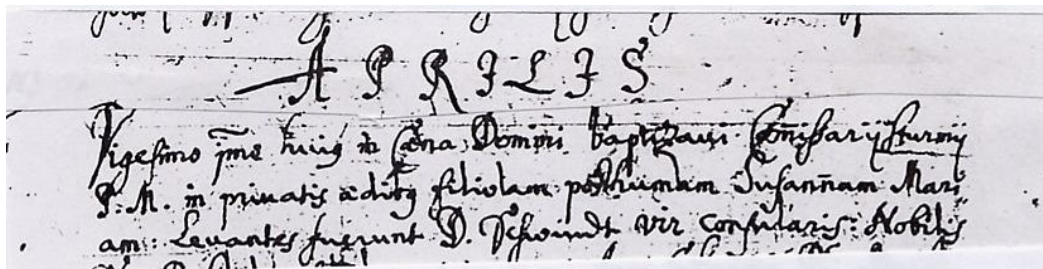 APRILIS
Vigesimo prim̄o huius in Cœna Domini baptizavi Com̄issarij Sturmij
P: M. in privatis ædibus filiolam posthumam Susan̄nam Mari
am: Levantes fuerunt D. Schwindt vir consularis: Nobilis